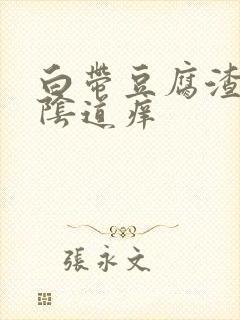 白帶豆腐渣
陰道痒
張永文